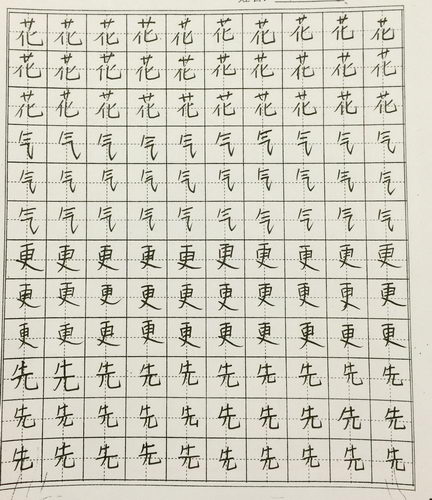 花花花花花花花花花花
花花花花花花花花花花
花花花花花花花花花花
气气气气气气气气气气
气气气气气气气气气气
气气气气气气气气气气
更更更更更更更更更更
更更更更更更更更更更
更更更更更更更更更更
先先先先先先先先先先
先先先先先先先先先先
先先先先先先先先先先